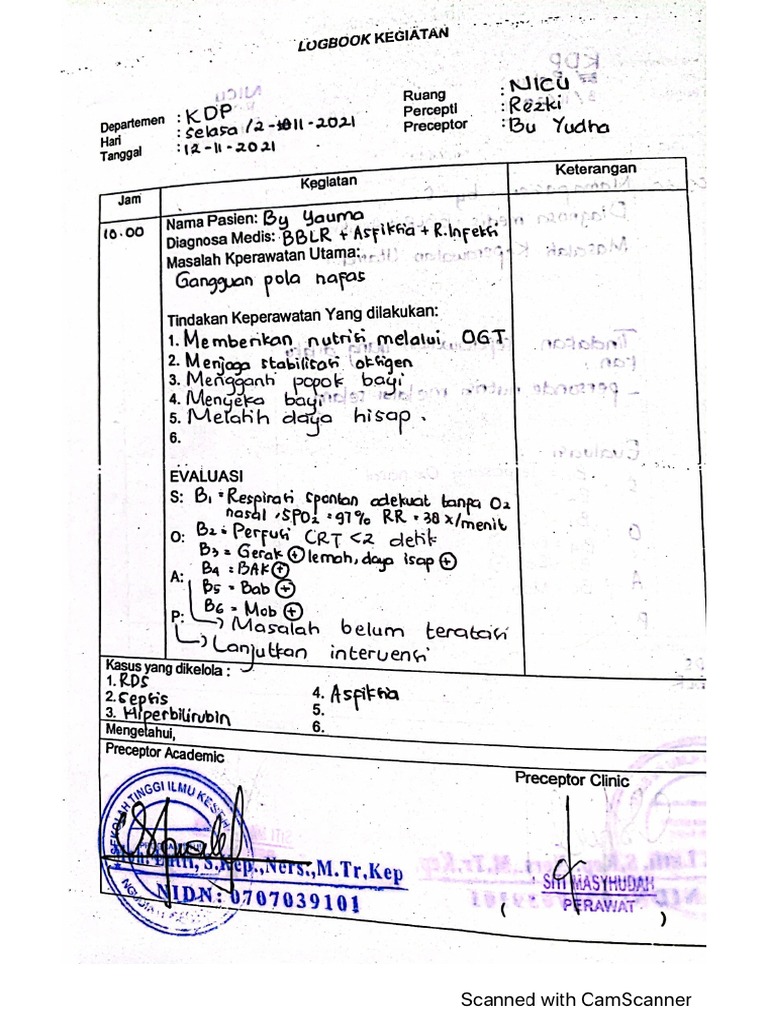 LOGBOOK KEGIATAN
Departemen : KDP
Hari : Selasa /2-11-2021
Tanggal : 12-11-2021
Ruang : NICU
Percepti : Rezki
Preceptor : Bu Yudha
Jam Kegiatan Keterangan
10.00
Nama Pasien: By Yauma
Diagnosa Medis: BBLR + Asfiksia + R.Infeksi
Masalah Kperawatan Utama:
Gangguan pola nafas
Tindakan Keperawatan Yang dilakukan:
1. Memberikan nutrisi melalui OGT
2. Menjaga stabilisasi oksigen
3. Mengganti popok bayi
4. Menyeka bayi
5. Melatih daya hisap .
6.
EVALUASI
S: B1 = Respirasi spontan adekuat tanpa O2
nasal, SPO2 = 97% RR = 38 x/menit
O: B2 = Perfusi CRT <2 detik
B3 = Gerak (+) lemah, daya isap (+)
B4 = BAK (+)
A: B5 = Bab (+)
B6 = Mob (+)
P: Masalah belum teratasi
Lanjutkan intervensi
Kasus yang dikelola :
1. RDS
2. Sepsis
3. Hiperbilirubin
4. Asfiksia
5.
6.
Mengetahui,
Preceptor Academic
Preceptor Clinic
SEKOLAH TINGGI ILMU KESEH
S.Kep.,Ners.,M.Tr,Kep
NIDN: 0707039101
SITI MASYHUDAH
PERAWAT
( )
Scanned with CamScanner